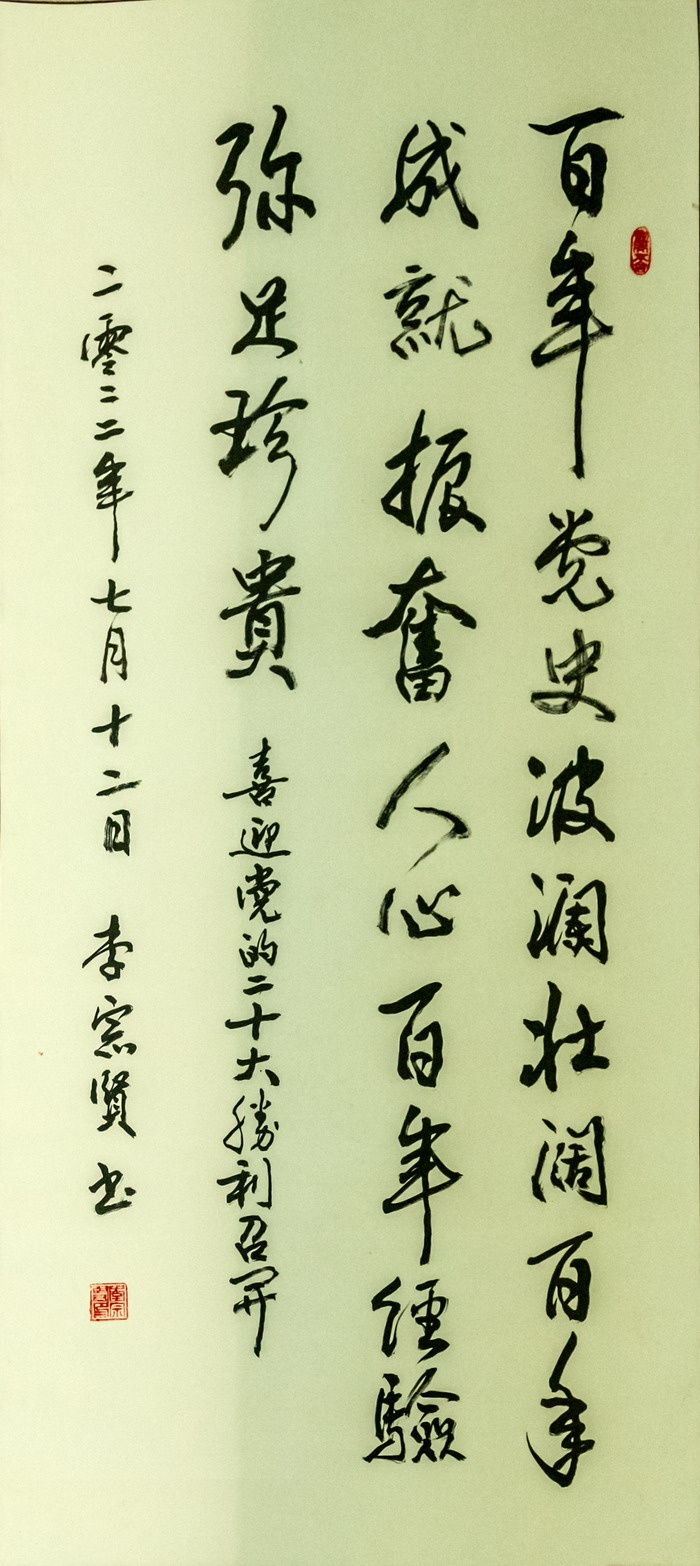 百年党史波澜壮阔百年
成就振奮人心百年経驗
弥足珍貴 喜迎党的二十大勝利召开
二零二二年七月十二日 李宗賢书